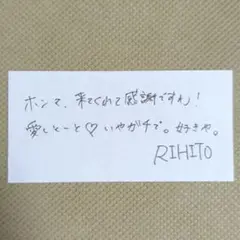 ホンマ、来てくれて感謝ですわ!
愛しとーと♡いやガチで。好きや。
RIHITO